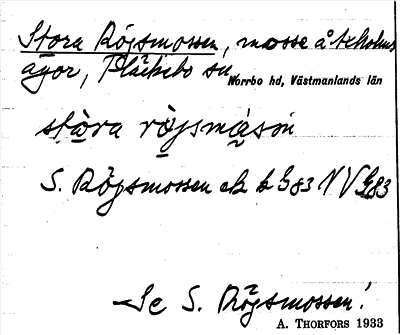 Stora Röjsmossen, mosse å Axholms
ägor, Fläckebo sn
Norrbo hd, Västmanlands län
stòra ròjsmåsön
S. Röjsmossen ek b G83 NV G83
Se S. Rögsmossen!
A. THORFORS 1933